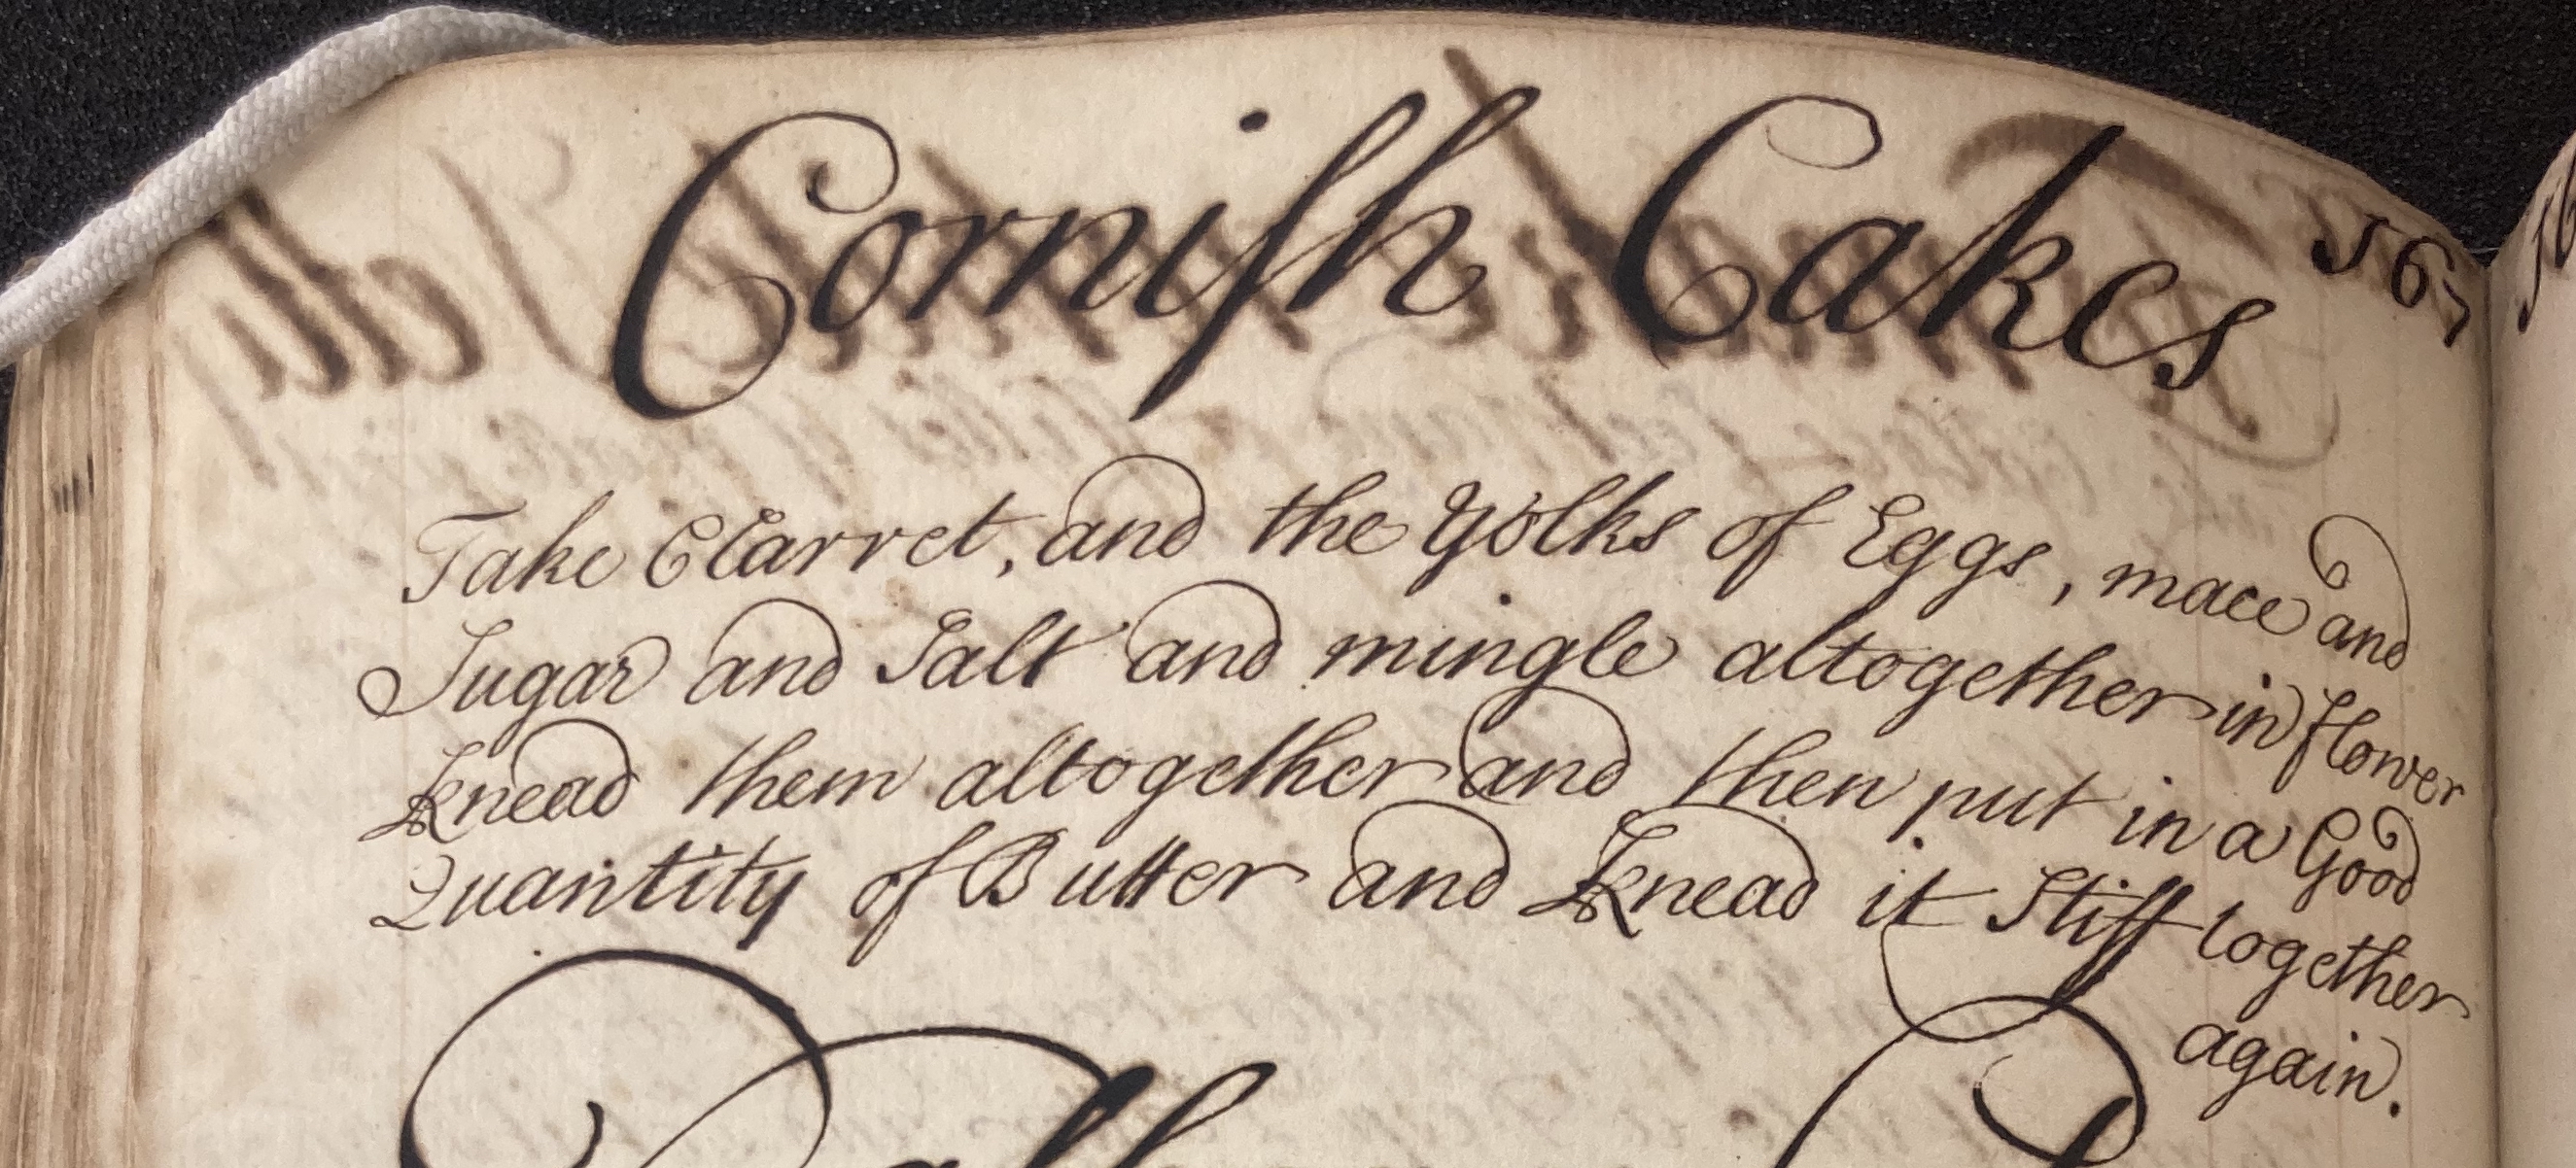 Corniſh Cakes 567
Take Clarret, and the Yolks of Eggs, mace and
Sugar and Salt and mingle altogether in flower
Knead them altogether and then put in a Good
Quantity of Butter and Knead it Stiff together
again.